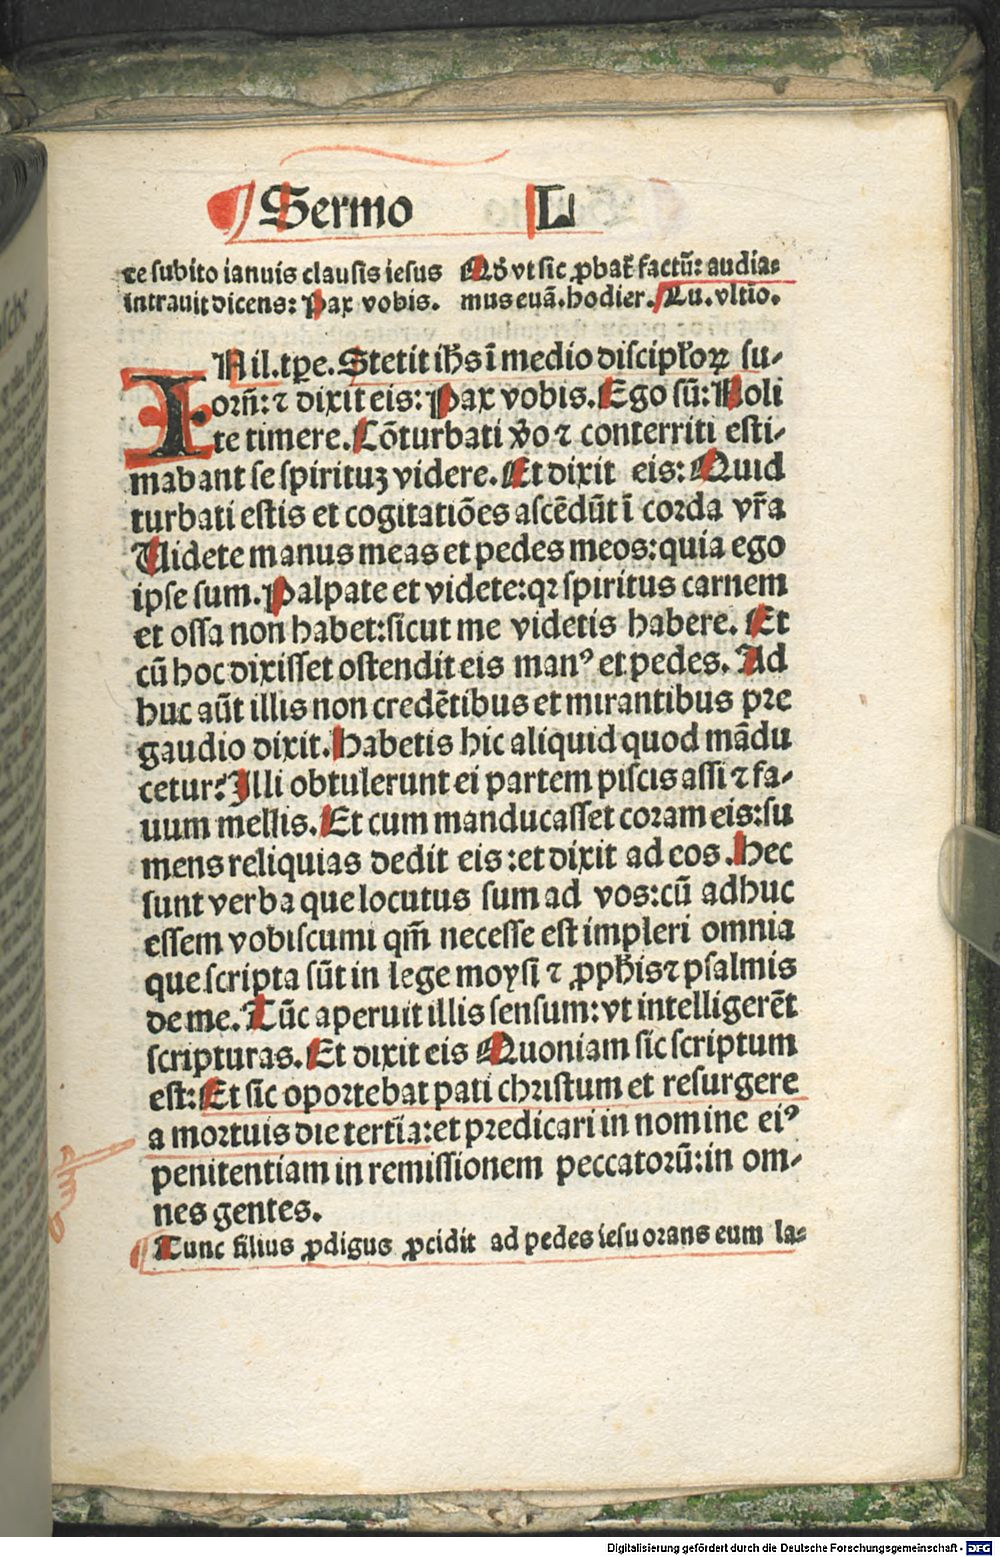 Sermo L
te subito ianuis clausis iesus
intrauit dicens: Pax vobis.
Qđ vt sic ꝓbať factū: audia-
mus euā. hodier. Lu. vltio.
IN il. tp̄e. Stetit ih̄s ī medio discipĺoꝝ su-
orū: ⁊ dixit eis: Pax vobis. Ego sū: Noli
te timere. Cōturbati ṽo ⁊ conterriti esti-
mabant se spirituꝫ videre. Et dixit eis: Quid
turbati estis et cogitatiōes ascēdūt ī corda vr̄a
Uidete manus meas et pedes meos: quia ego
ipse sum. Palpate et videte: qꝛ spiritus carnem
et ossa non habet: sicut me videtis habere. Et
cū hoc dixisset ostendit eis manꝰ et pedes. Ad
huc aūt illis non credētibus et mirantibus pre
gaudio dixit. Habetis hic aliquid quod mādu
cetur? Illi obtulerunt ei partem piscis assi ⁊ fa-
uum mellis. Et cum manducasset coram eis: su
mens reliquias dedit eis: et dixit ad eos. Hec
sunt verba que locutus sum ad vos: cū adhuc
essem vobiscum qm̄ necesse est impleri omnia
que scripta sūt in lege moysi ⁊ ꝓph̄is ⁊ psalmis
de me. Tūc aperuit illis sensum: vt intelligerēt
scripturas. Et dixit eis Quoniam sic scriptum
est: Et sic oportebat pati christum et resurgere
a mortuis die tertia: et predicari in nomine eiꝰ
penitentiam in remissionem peccatorū: in om-
nes gentes.
Tunc filius ꝓdigus ꝓcidit ad pedes iesu orans eum la-
Digitalisierung gefördert durch die Deutsche Forschungsgemeinschaft - DFG